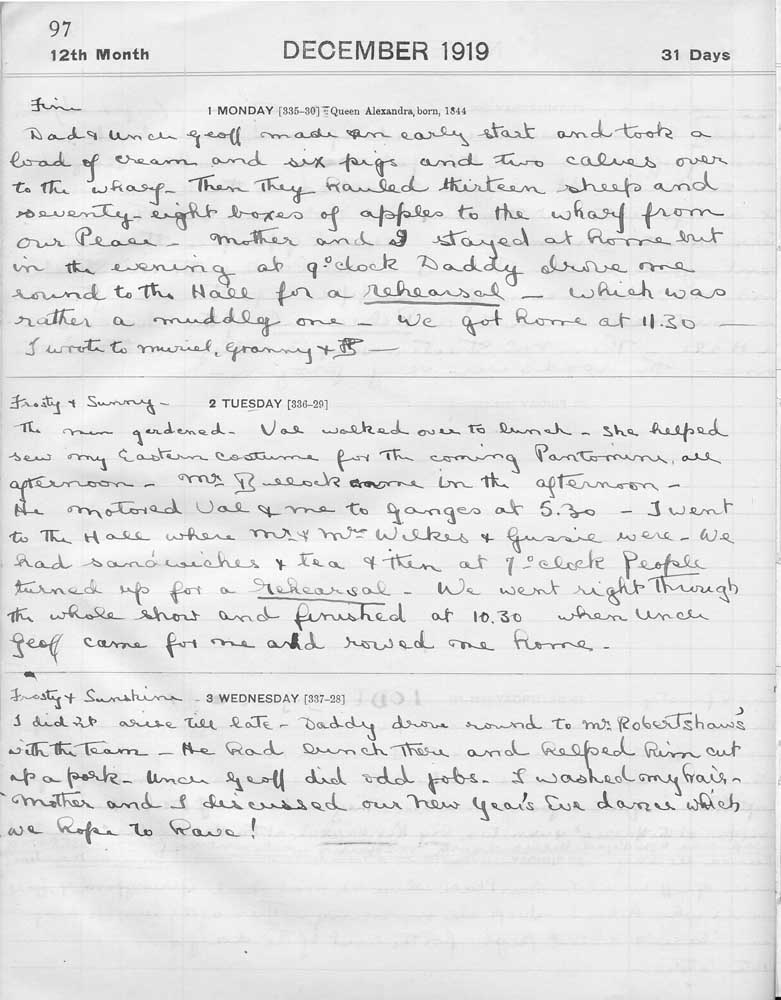 97
12th Month
DECEMBER 1919
31 Days
Fine
1 MONDAY [335-30] Queen Alexandra, born, 1844
Dad & Uncle Geoff made an early start and took a
load of cream and six pigs and two calves over
to the wharf - Then They hauled thirteen sheep and
seventy-eight boxes of apples to the wharf from
our Place - Mother and I stayed at home but
in the evening at 9 o'clock Daddy drove me
round to the Hall for a rehearsal - which was
rather a muddly one - We got home at 11.30 —
I wrote to Muriel, Granny & —
Frosty & Sunny -
2 TUESDAY [336-29]
The men gardened - Val walked over to lunch - she helped
sew my Eastern costume for The coming Pantomine, all
afternoon - Mr Bullock came in the afternoon -
He motored Val & me to Ganges at 5.30 - I went
to the Hall where Mr & Mrs Wilkes & Gussie were - We
had sandwiches & tea & then at 7 o'clock People
turned up for a rehearsal - We went right Through
the whole show and finished at 10.30 when Uncle
Geoff came for me and rowed me home -
Frosty & Sunshine -
3 WEDNESDAY [337-28]
I didn't arise till late - Daddy drove round to Mr Robertshaw's
with the Team - He had lunch There and helped him cut
up a pork - Uncle Geoff did odd jobs - I washed my hair -
Mother and I discussed our New Year's Eve dance which
we hope to have!